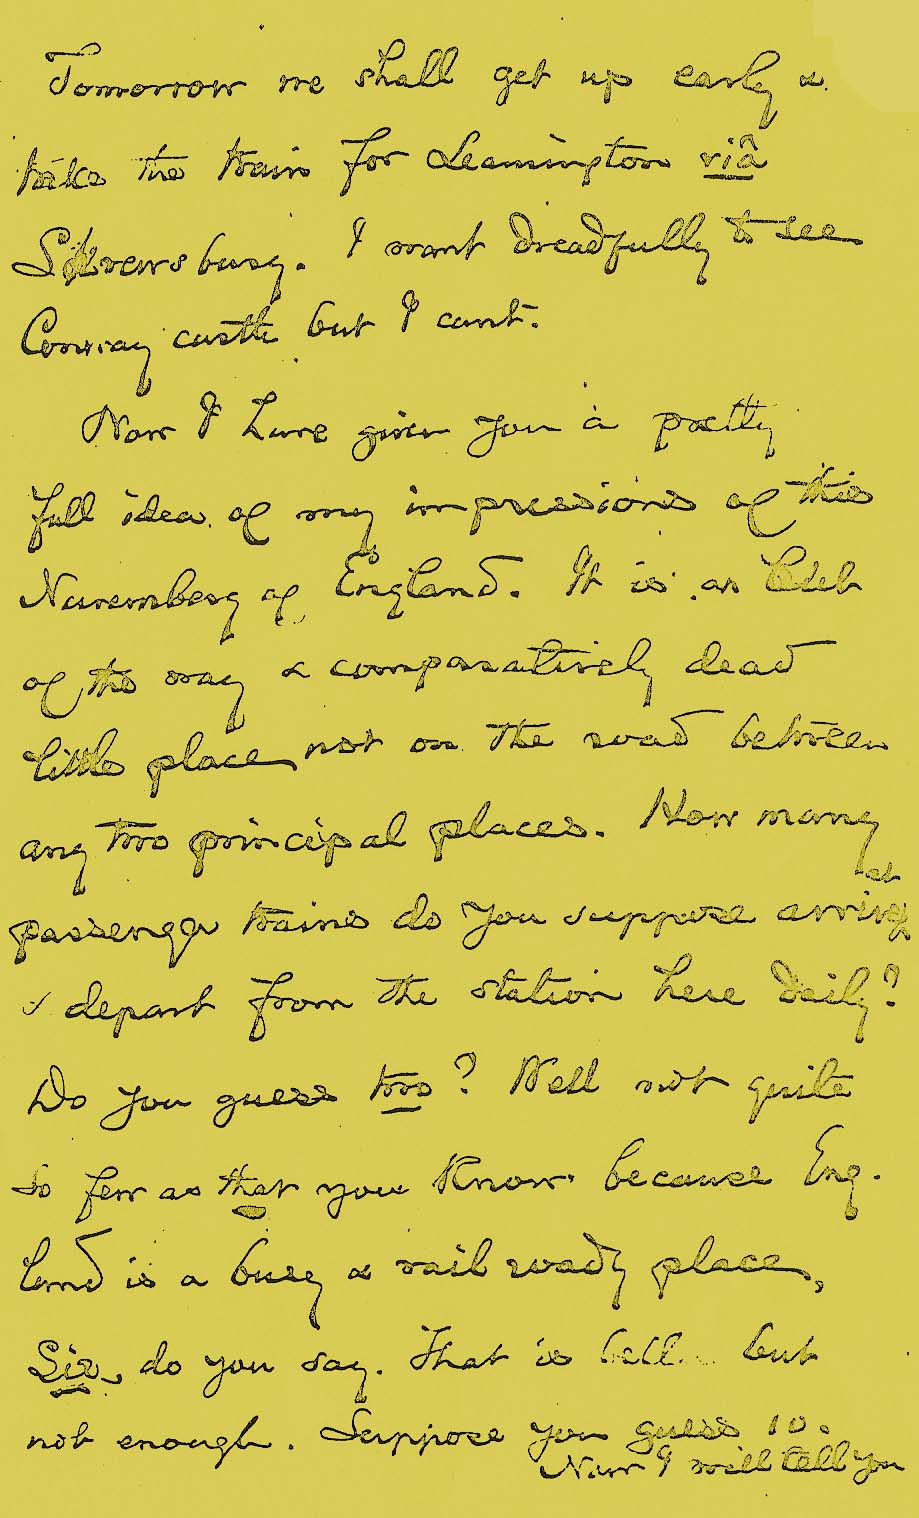 Tomorrow we shall get up early &
take the train for Leamington viâ
Shrewsbury. I want dreadfully to see
Conway castle but I cant.
Now I have given you a pretty
full idea of my impressions of this
Nuremberg of England. It is an
of the way & comparatively dead
little place, not on the road between
any two principal places. How many
passenger trains do you suppose arrive at
& depart from the station here daily?
Do you guess two? Well not quite
so few as that you know, because Eng-
land is a busy & rail roady place,
Six, do you say. That is but
not enough. Suppose you guess 10.
Now I will tell you